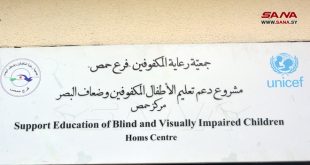 SANA
WWW.SANA.SY
جمعية رعاية المكفوفين . فرع حمص
unicef
مشروع دعم تعليم الأطفال المكفوفين وضعاف البصر
مركز حمص
Support Education of Blind and Visually Impaired Children
Homs Centre